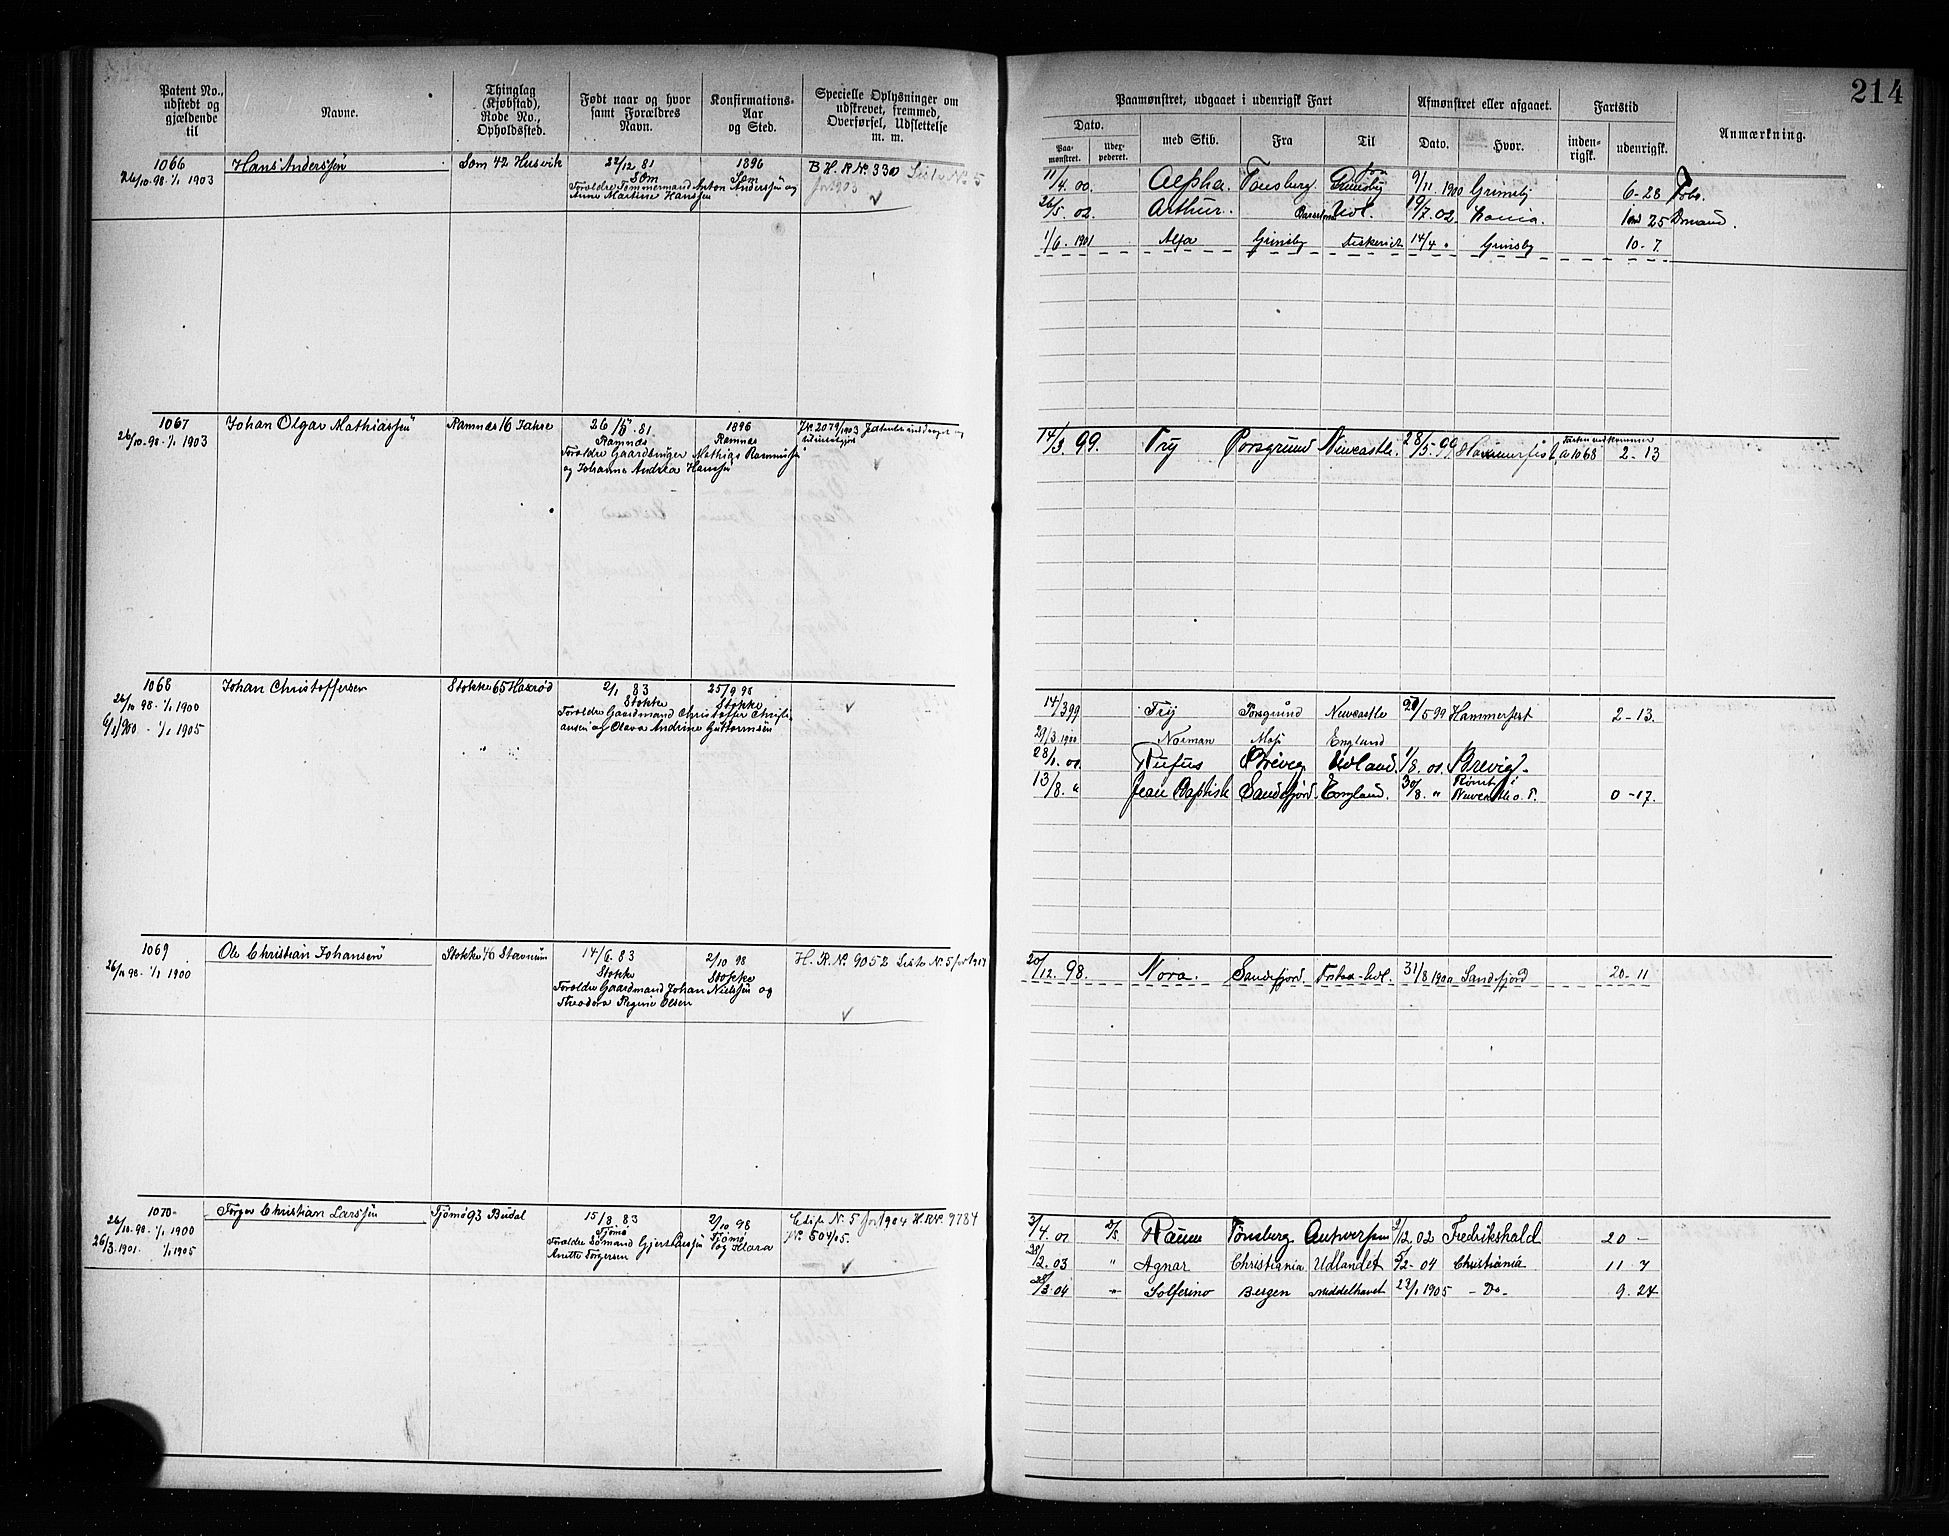 214
Patent No., udstedt og gjældende til
Navne.
Thinglag (Kjøbstad), Rode No., Opholdssted.
Født naar og hvor samt Forældres Navn.
Konfirmations-Aar og Sted.
Specielle Oplysninger om udskrevet, fremmed, Overførsel, Udslettelse m. m.
Paamønstret, udgaaet i udenrigsk Fart
Afmønstret eller afgaaet.
Fartstid
Anmærkning.
Dato.
Paa-mønstret.
Udex-pederet.
med Skib.
Fra
Til
Dato.
Hvor.
inden-rigsk.
udenrigsk.
1066
26/10-98-1/1 1903
Hans Anderssen
Sem 42 Husvik
22/12 81
Sem
Forældre Tømmermand Anton Anderssen og
Anne Martine Hanssen
1896
Sem
B H. R No. 330 Liste No. 5
for 1903
11/4. 00. Alpha. Tønsberg. Grimsby 9/11 1900 Grimsby 6-28
26/5. 02. Arthur. Udl. 19/7. 02. 25
1/6. 1901 Alfa Grimsby Fiskeriet 14/4 Grimsby 10-7.
1067
26/10-98-1/1 1903
Johan Olgar Mathiassen
Ramnæs 16 Jahre
26/10. 81.
Ramnæs
Forældre Gaardbruger Mathias Rasmussen
og Johanne Andrea Hanssen
1896
Ramnæs
J.No. 2079/1903
14/3. 99. Try Porsgrund Newcastle. 28/5. 99 Hammerfest a 1068 2-13
1068
26/10 98-1/1 1900
6/1 1900 - 1/1 1905
Johan Christoffersen
Stokke 65 Haxrød
2/1 83
Stokke
Forældre Gaardmand Christoffer Christi-
ansen og Olava Andrine Guttormsen
25/9 98
Stokke
14/3 99 Try Porsgrund Newcastle 28/5 99 Hammerfest 2-13.
29/3 1900 Norman Moss England
28/1. 01 Rufus Brevig Udland. 1/8. 01. Brevig.
13/8. " Jean Baptiste Sandefjord. England. 30/8. " Rømt i
Newcastle o. T. 0-17.
1069
26/10 98-1/1 1900
Ole Christian Johansen
Stokke 46 Stavnum
14/6. 83
Stokke
Forældre Gaardmand Johan Nielssen og
Theodora Regine Olsen
2/10 98
Stokke
H. R. No. 9052 Liste No. 5 for 1904
20/12. 98. Nora. Sandefjord. 31/8 1900 Sandefjord 20-11
1070-
26/10-98-1/1 1900
26/3. 1901. 1/1 1905
Torger Christian Larssen
Tjømø 93 Budal
15/8. 83
Tjømø
Forældre Sømand Gjert Larssen og Klara
Anette Torgersen
2/10 98
Tjømø
Liste No. 5 for 1904 H.R.No. 9784
J.No. 504/05.
3/4. 01 2/5 Raum Tønsberg Antwerpen 9/12 02 Fredrikshald 20-
28/2. 03 " Agnar Christiania Udlandet 5/2-04 Christiania 11 7
28/3 04 " Solferino Bergen Middelhavet 23/1 1905 - Do - 9-24